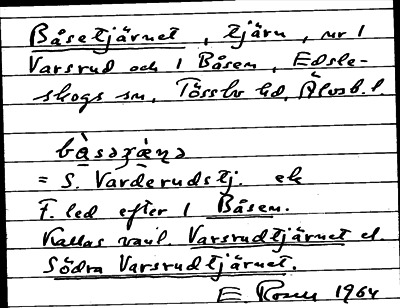 Båsetjärnet, tjärn, nr 1
Varsrud och 1 Båsen, Edsle-
skogs sn, Tössbo hd, Älvsb. l.
= S. Varderudstj.
F. led efter 1 Båsen.
Kallas vanl. Varsrudtjärnet el.
Södra Varsrudtjärnet.
E Rosen 1964